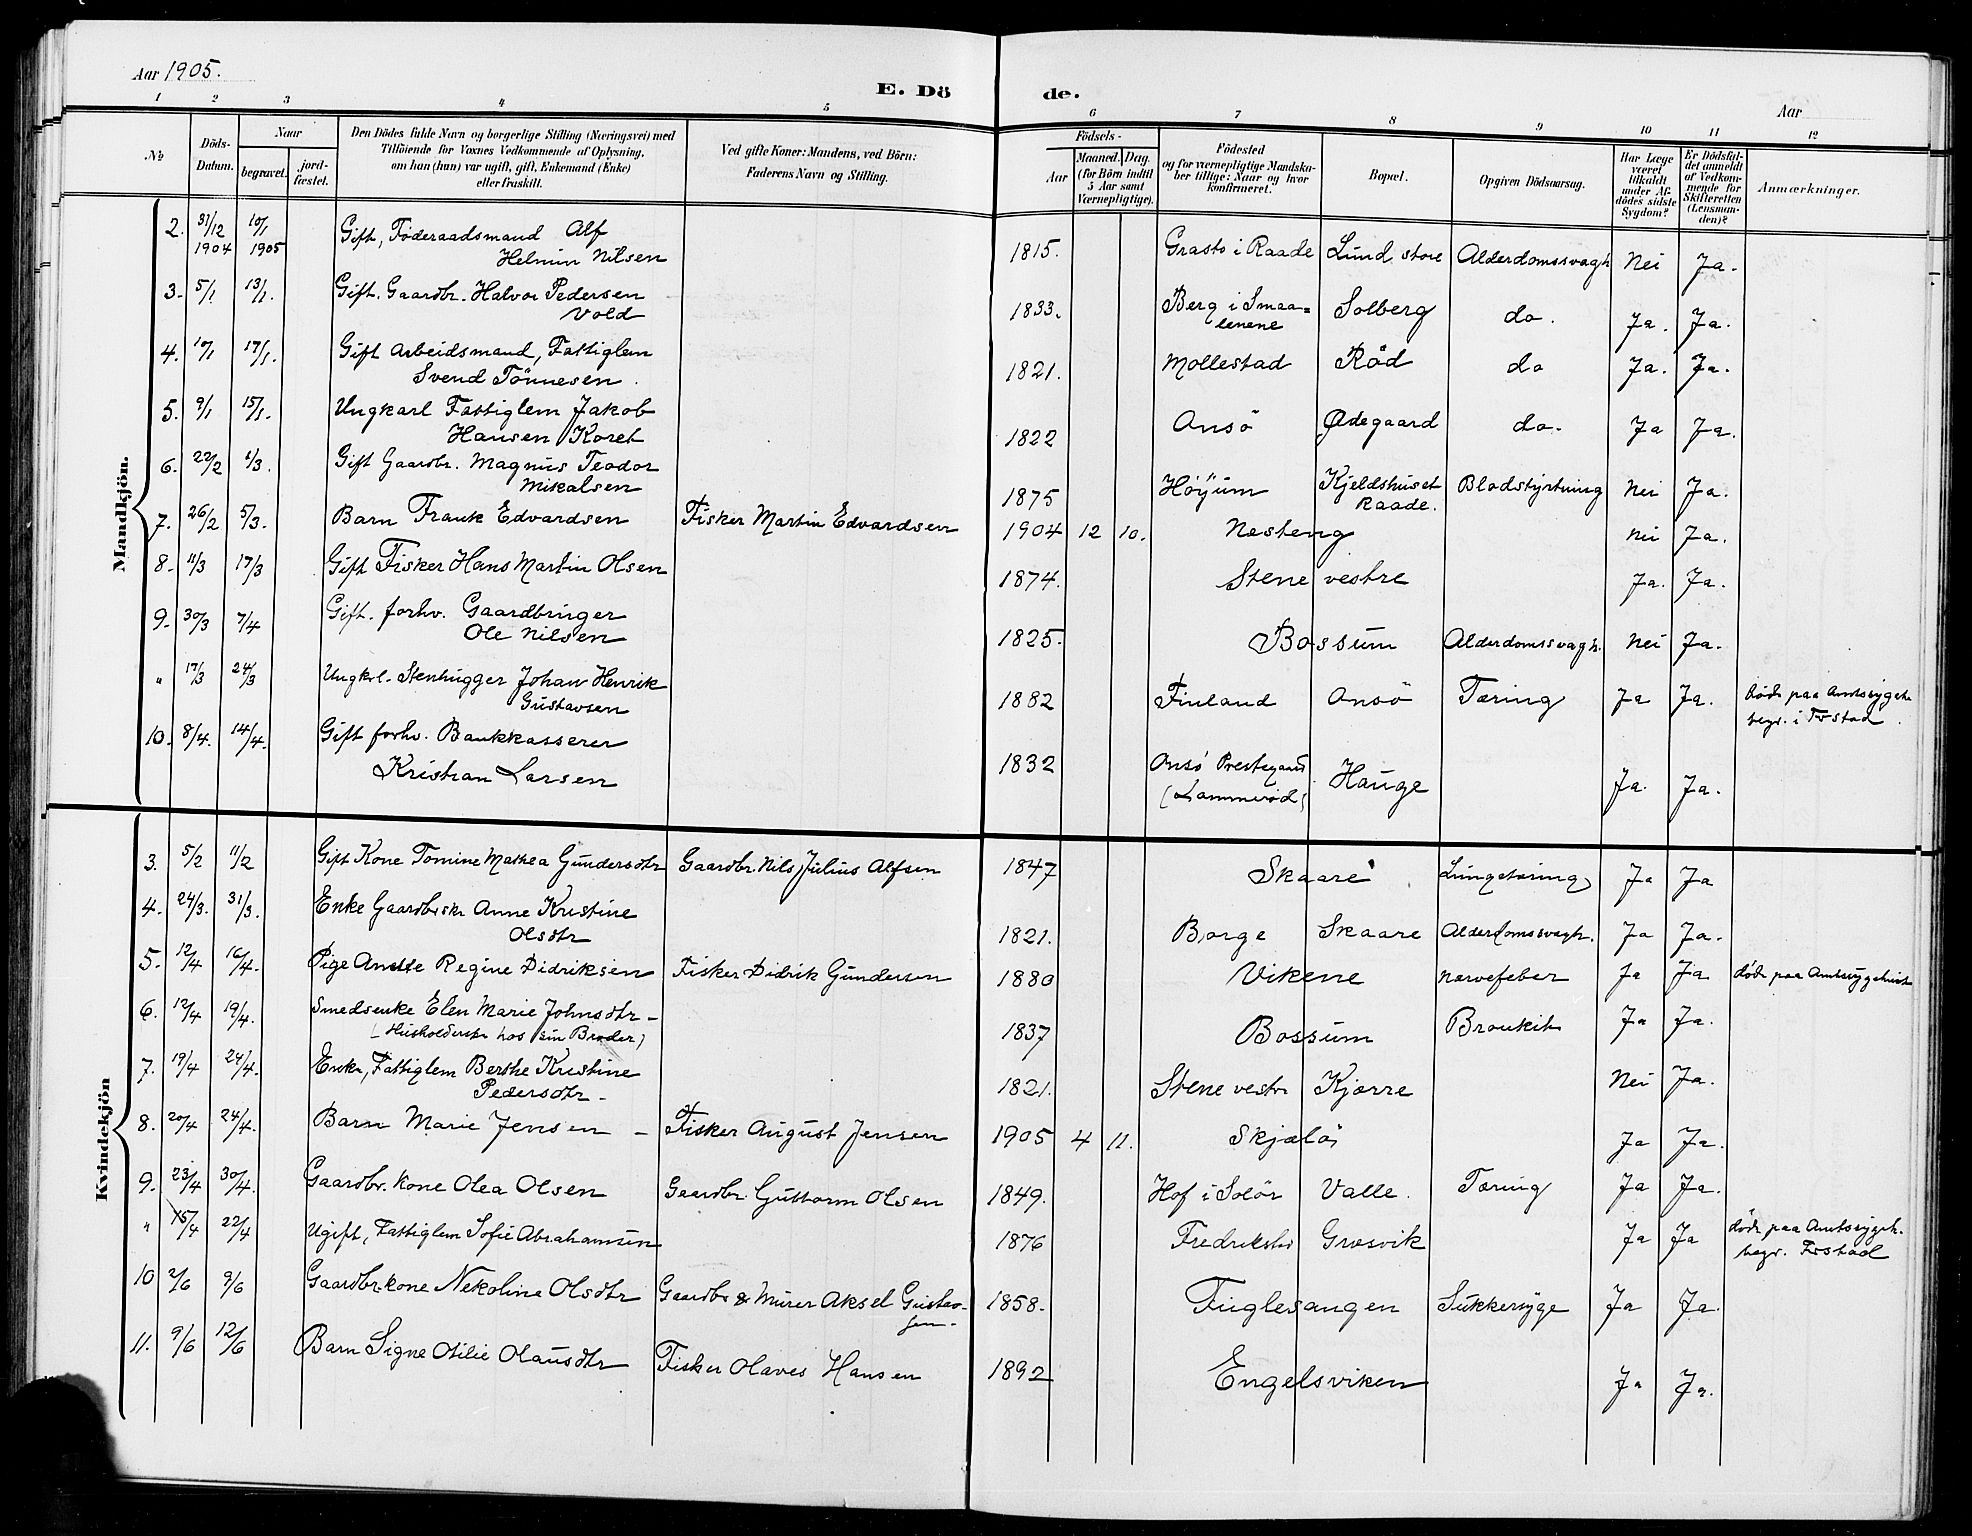 Aar 1905.
E. Döde.
Aar
1 2 3 4 5 6 7 8 9 10 11 12
No
Döds-Datum.
Naar
begravet.
jordfæstet.
Den Dödes fulde Navn og borgerlige Stilling (Næringsvei) med
Tilföiende for Voxnes Vedkommende af Oplysning,
om han (hun) var ugift, gift, Enkemand (Enke)
eller fraskilt.
Ved gifte Koner: Mandens, ved Börn:
Faderens Navn og Stilling.
Födsels-
Aar
Maaned. Dag.
(for Börn indtil
5 Aar samt
Værnepligtige).
Födested
og for værnepligtige Mandska-
ber tillige: Naar og hvor
konfirmeret.
Bopæl.
Opgiven Dödsaarsag.
Har Læge
været
tilkaldt
under Af-
dödes sidste
Sygdom?
Er Dödsfal-
det anmeldt
af Vedkom-
mende for
Skifteretten
(Lensman-
den)?
Anmærkninger.
Mandkjön.
2. 31/12 1904 10/1 1905 Gift, Föderaadsmand Alf
Helmin Nilsen 1815. Grasto i Raade Lund, store Alderdomssvagh Nei Ja.
3. 5/1 13/1. Gift. Gaardbr. Halvor Pedersen
Vold 1833. Berg i Smaa=
lenene Solberg do. Ja. Ja.
4. 10/1 17/1. Gift Arbeidsmand, Fattiglem
Svend Tönnesen. 1821. Mollestad Röd do Ja. Ja.
5. 9/1 15/1. Ungkarl Fattiglem Jakob
Hansen Koret 1822 Onsö Ødegaard do. Ja Ja.
6. 22/2 1/3. Gift Gaardbr. Magnus Teodor
Mikalsen 1875 Höyum Kjeldshuset
Raade. Blodstyrtning Nei Ja.
7. 26/2 5/3. Barn Frank Edvardsen Fisker Martin Edvardsen 1904 12 10. Næsteng Nei Ja.
8. 11/3 17/3 Gift Fisker Hans Martin Olsen 1874. Stene vestre Ja. Ja.
9. 30/3 7/4 Gift. forhv. Gaardbruger
Ole Nilsen 1825. Bossum Alderdomssvagh. Nei Ja.
" 17/3 24/3 Ungkrl. Stenhugger Johan Henrik
Gustavsen 1882 Finland Onsö Tæring Ja Ja. död paa Amtssygeh.
begr. i Frstad.
10. 8/4. 14/4. Gift forhv. Bankkasserer
Kristian Larsen 1832 Onsö Prestegaard
(Lammeröd) Hauge Ja. Ja.
Kvindekjön
3. 5/2 11/2 Gift Kone Tomine Mathea Gundersdtr Gaardbr. Nils Julius Alfsen 1847 Skaare Lungetæring Ja Ja
4. 24/3. 31/3. Enke Gaardbrsk. Anne Kristine
Olsdtr 1821. Borge Skaare Alderdomssvagh. Ja Ja.
5. 12/4 16/4. Pige Anette Regine Didriksen Fisker Didrik Gundersen 1880 Vikene Nervefeber Ja Ja död paa Amtssygehuset
6. 12/4 19/4. Smedsenke Elen Marie Johnsdtr -
(Husholderske hos sin Broder) 1837 Bossum Bronkit Ja Ja.
7. 19/4 24/4. Enke, Fattiglem Berthe Kristine
Pedersdtr - 1821. Stene vestr. Kjærre Nei Ja.
8. 20/4 24/4. Barn Marie Jensen - Fisker August Jensen 1905 4 11. Skjælö Ja Ja.
9. 23/4 30/4. Gaardbr. kone Olea Olsen Gaardbr. Guttorm Olsen 1849. Hof i Solör Valle. Tæring Ja Ja.
" 15/4 22/4 Ugift, Fattiglem Sofie Abrahamsen 1876 Fredrikstd Græsvik Ja Ja död paa Amtssygeh.
begr. Frstad
10 2/6 9/6 Gaardbr.kone Nekoline Olsdtr Gaardbr & Murer Aksel Gustav-
sen. 1858. Fuglesangen Sukkersyge Ja Ja.
11. 9/6 12/6 Barn Signe Otilie Olausdtr Fisker Olaves Hansen 1892 Engelsviken Ja Ja.